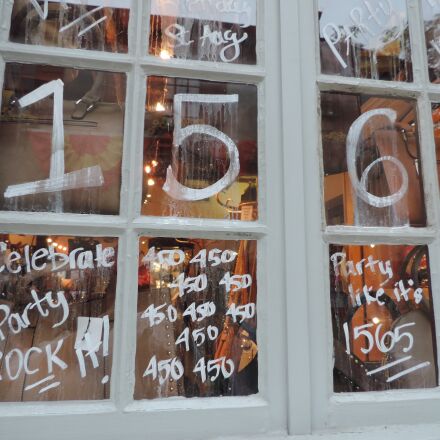 Party
1 5 6
Celebrate
Party
ROCK !!!
450 450
450 450
450 450 450
450
450 450
Party
like it's
1565